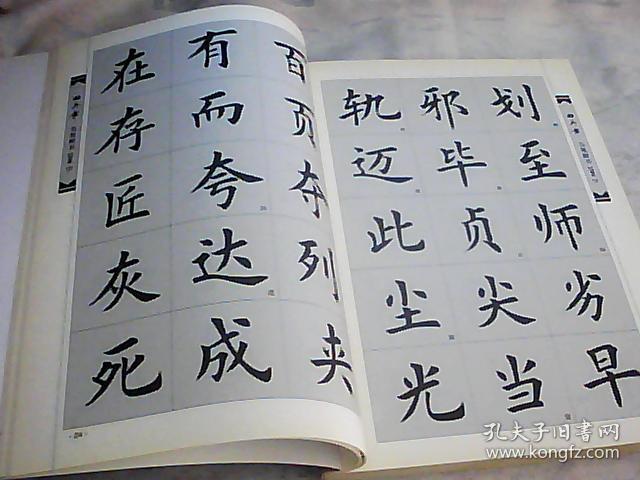 在有百
存而页
匠夸夺
灰达列
死成夹
轨邪划
迈毕至
此贞师
尘尖劣
光当早
孔夫子旧书网
www.kongfz.com